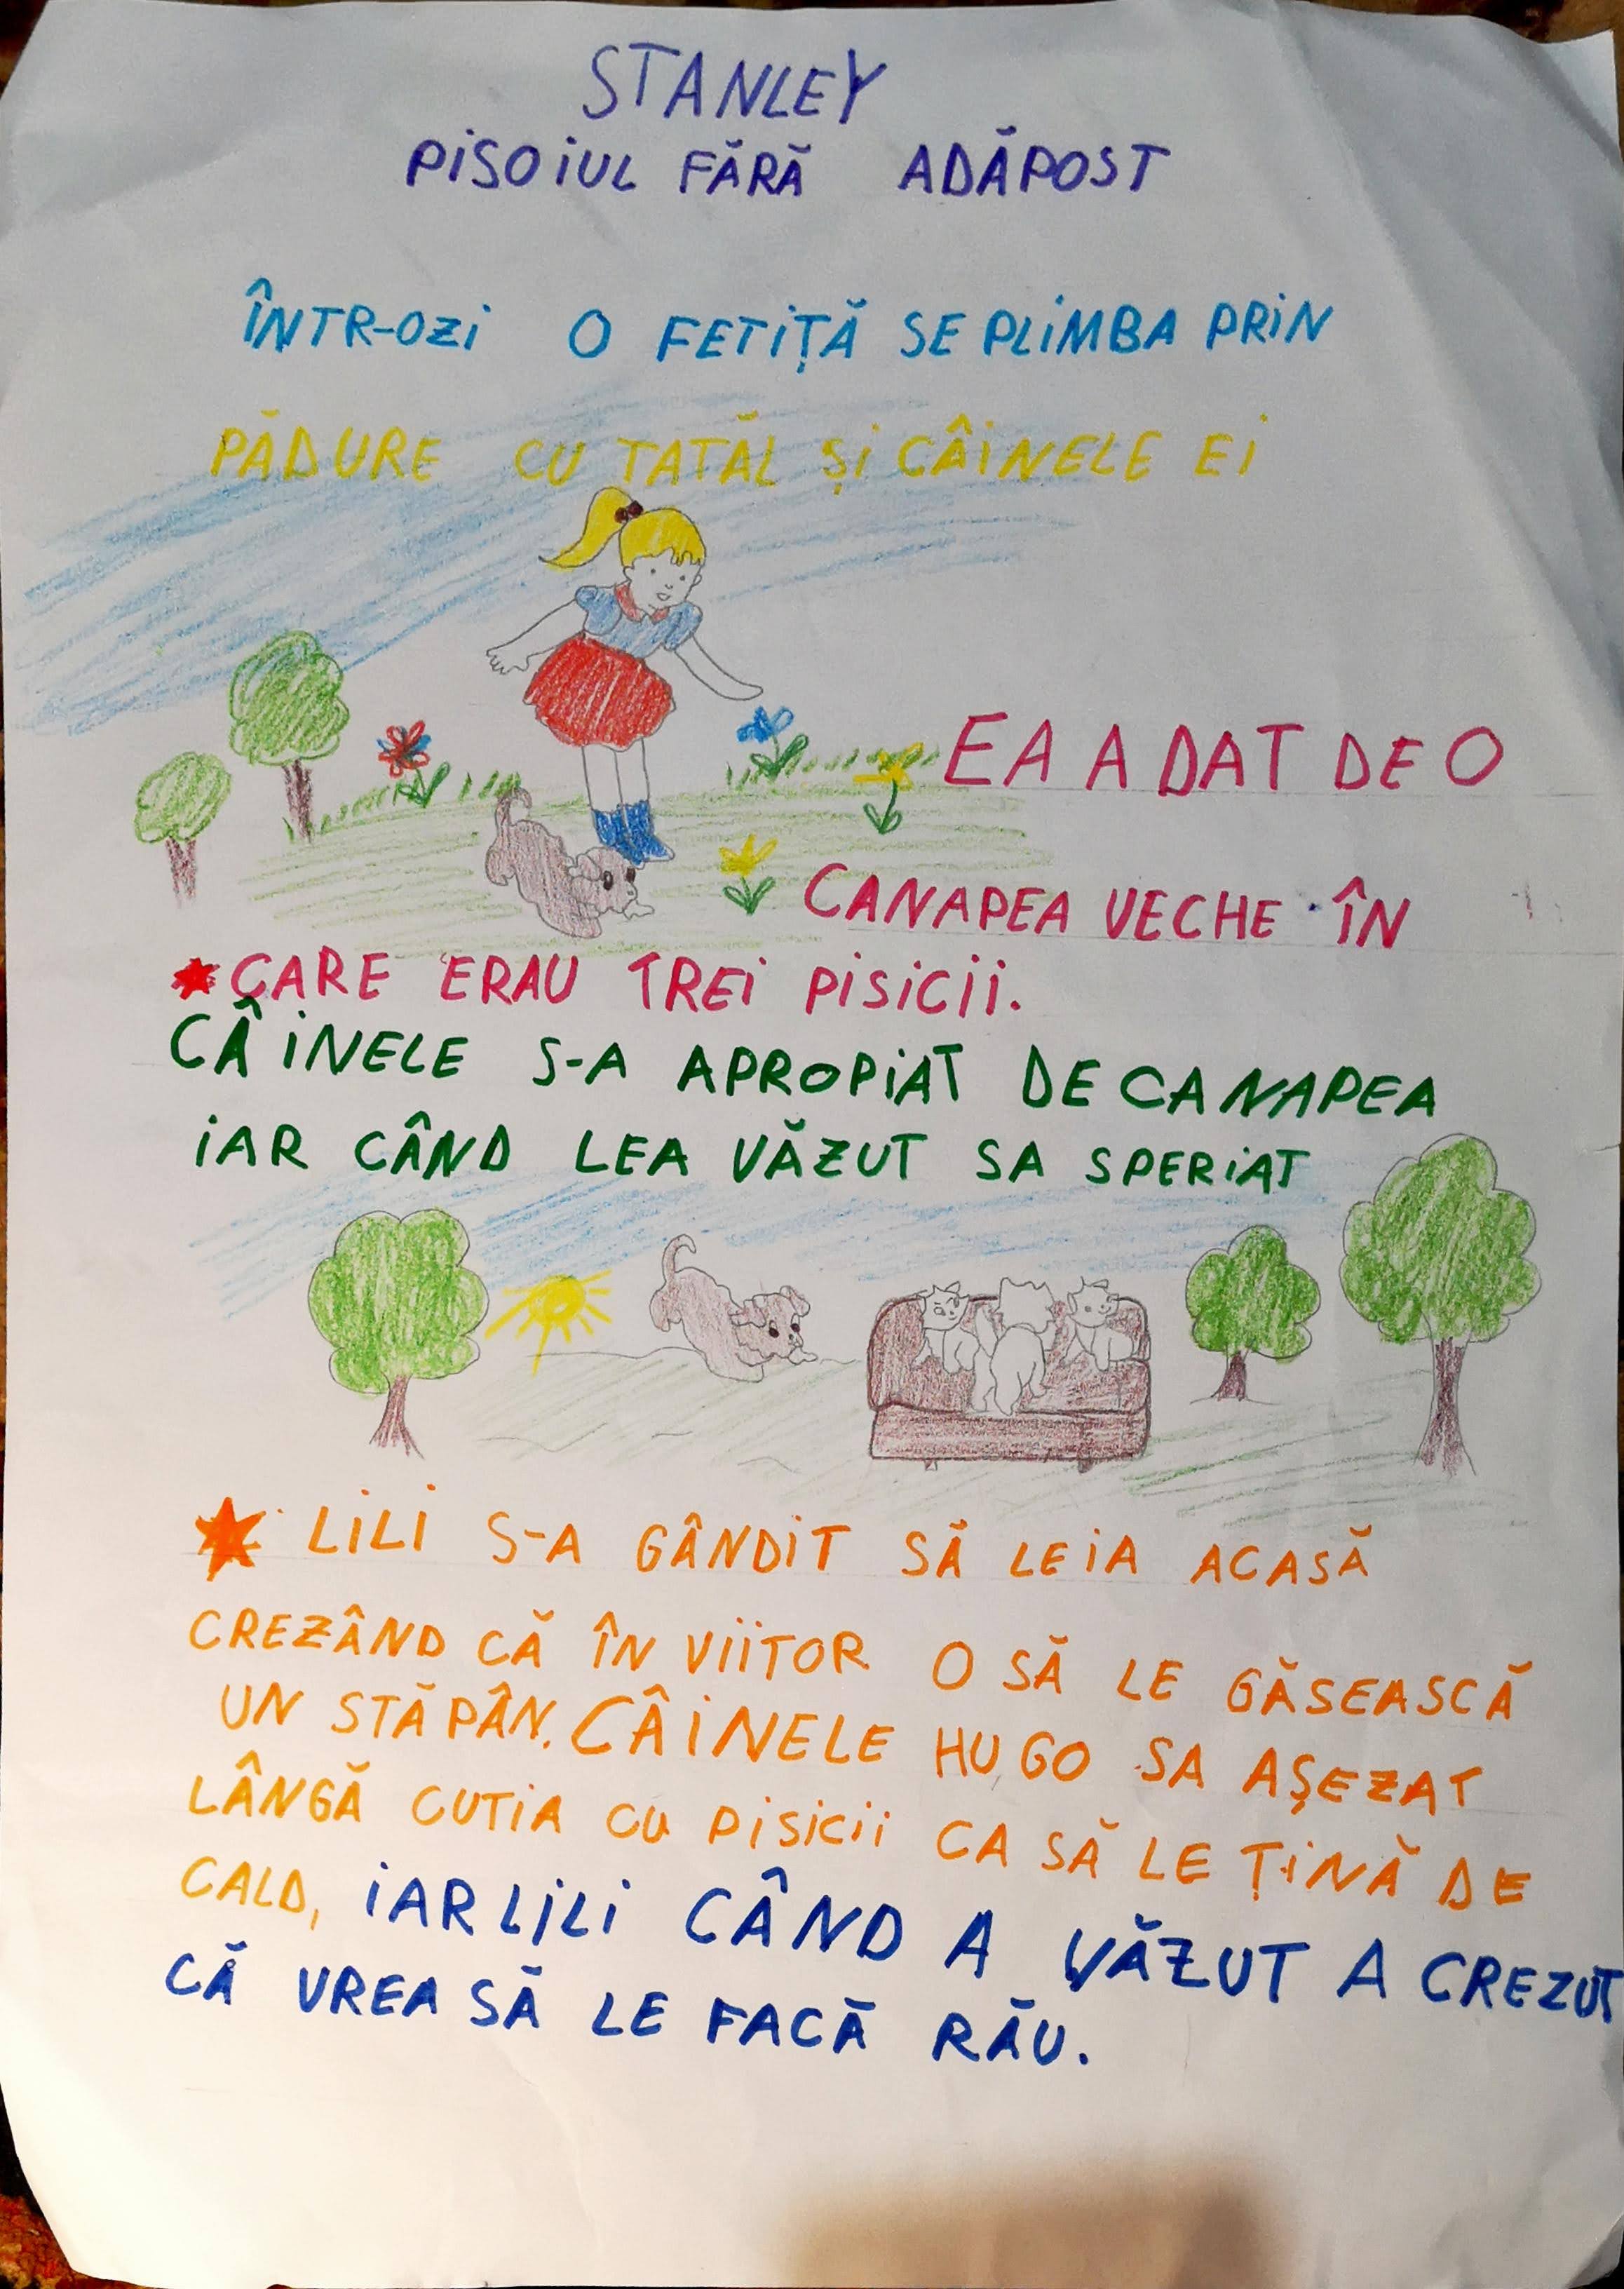 STANLEY
PiSOiUL FĂRĂ ADĂPOST
ÎNTR-OZi O FETiȚĂ SE PLiMBA PRiN
PĂDURE CU TATĂL Și CÂiNELE Ei
EA A DAT DE O
CANAPEA VECHE ÎN
CARE ERAU TREi PiSiCii.
CÂiNELE S-A APROPiAT DE CANAPEA
iAR CÂND LEA VĂZUT SA SPERiAT
LiLi S-A GÂNDiT SĂ LE iA ACASĂ
CREZÂND CĂ ÎN ViiTOR O SĂ LE GĂSEASCĂ
UN STĂPÂN. CÂiNELE HUGO SA AȘEZAT
LÂNGĂ CUTiA CU PiSiCii CA SĂ LE ȚiNĂ DE
CALD, iAR LiLi CÂND A VĂZUT A CREZUT
CĂ VREA SĂ LE FACĂ RĂU.